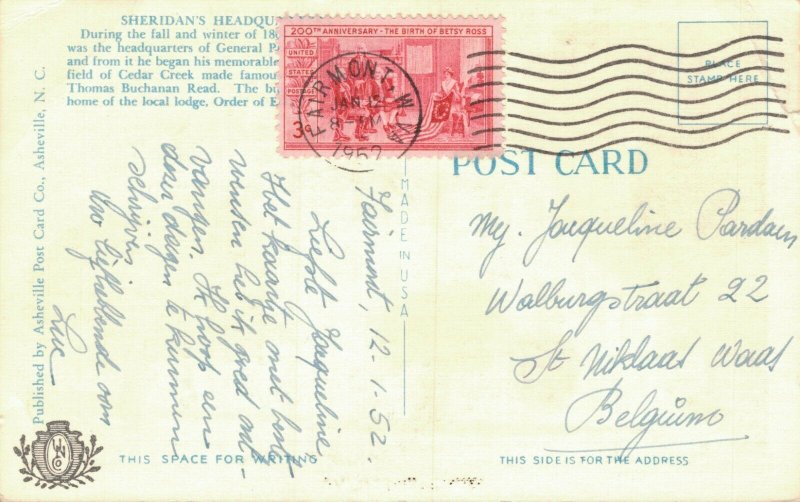 SHERIDAN'S HEADQU
During the fall and winter of 18
was the headquarters of General P
and from it he began his memorable
field of Cedar Creek made famou
Thomas Buchanan Read. The bu
home of the local lodge, Order of E
200TH ANNIVERSARY - THE BIRTH OF BETSY ROSS
UNITED
STATES
POSTAGE
3c
FAIRMONT, W.VA
JAN 12
8 - PM
1952
PLACE
STAMP HERE
POST CARD
MADE IN USA
Published by Asheville Post Card Co., Asheville, N. C.
Fairmont, 12-1-52.
Liefste Jaqueline,
Het kaartje met beste
wensen heb ik goed ont-
vangen. Ik hoop een
dezer dagen te kunnen
schrijven
Uw liefhebbende oom
Luc
Mej. Jacqueline Pardaen
Walburgstraat 22
St Niklaas Waas
Belgium
THIS SPACE FOR WRITING
THIS SIDE IS FOR THE ADDRESS